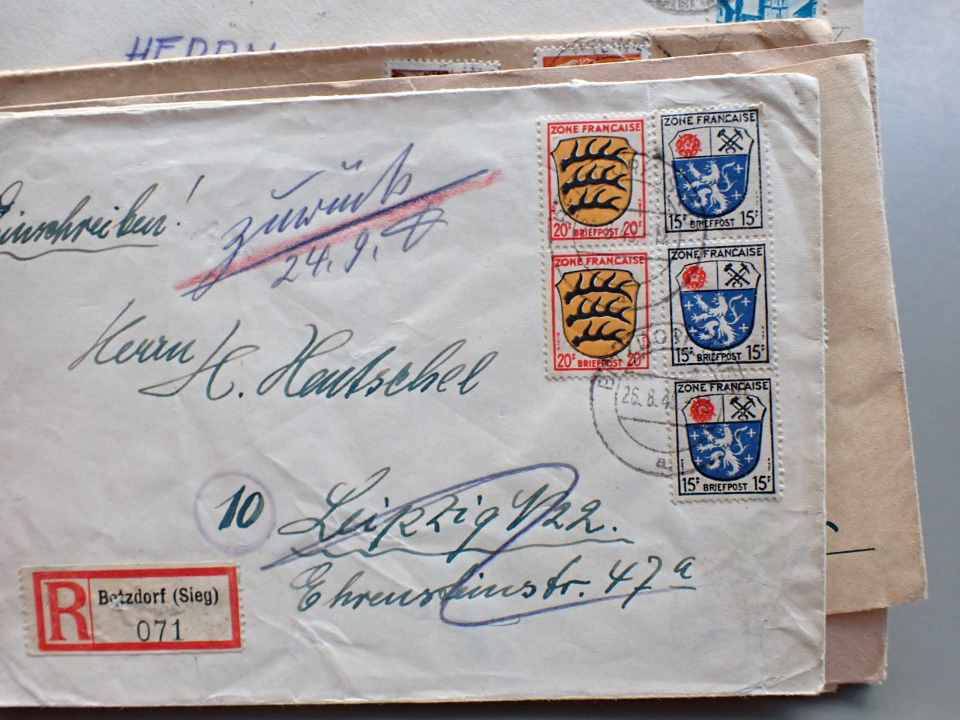 HERRN
Einschreiben!
zurück
24.9.
ZONE FRANÇAISE
20 BRIEFPOST 20
ZONE FRANÇAISE
20 BRIEFPOST 20
ZONE FRANÇAISE
15 BRIEFPOST 15
ZONE FRANÇAISE
15 BRIEFPOST 15
ZONE FRANÇAISE
15 BRIEFPOST 15
26.8.4
Herrn
H. Hentschel
10 Leipzig N22.
Ehrensteinstr. 47a
R Betzdorf (Sieg)
071